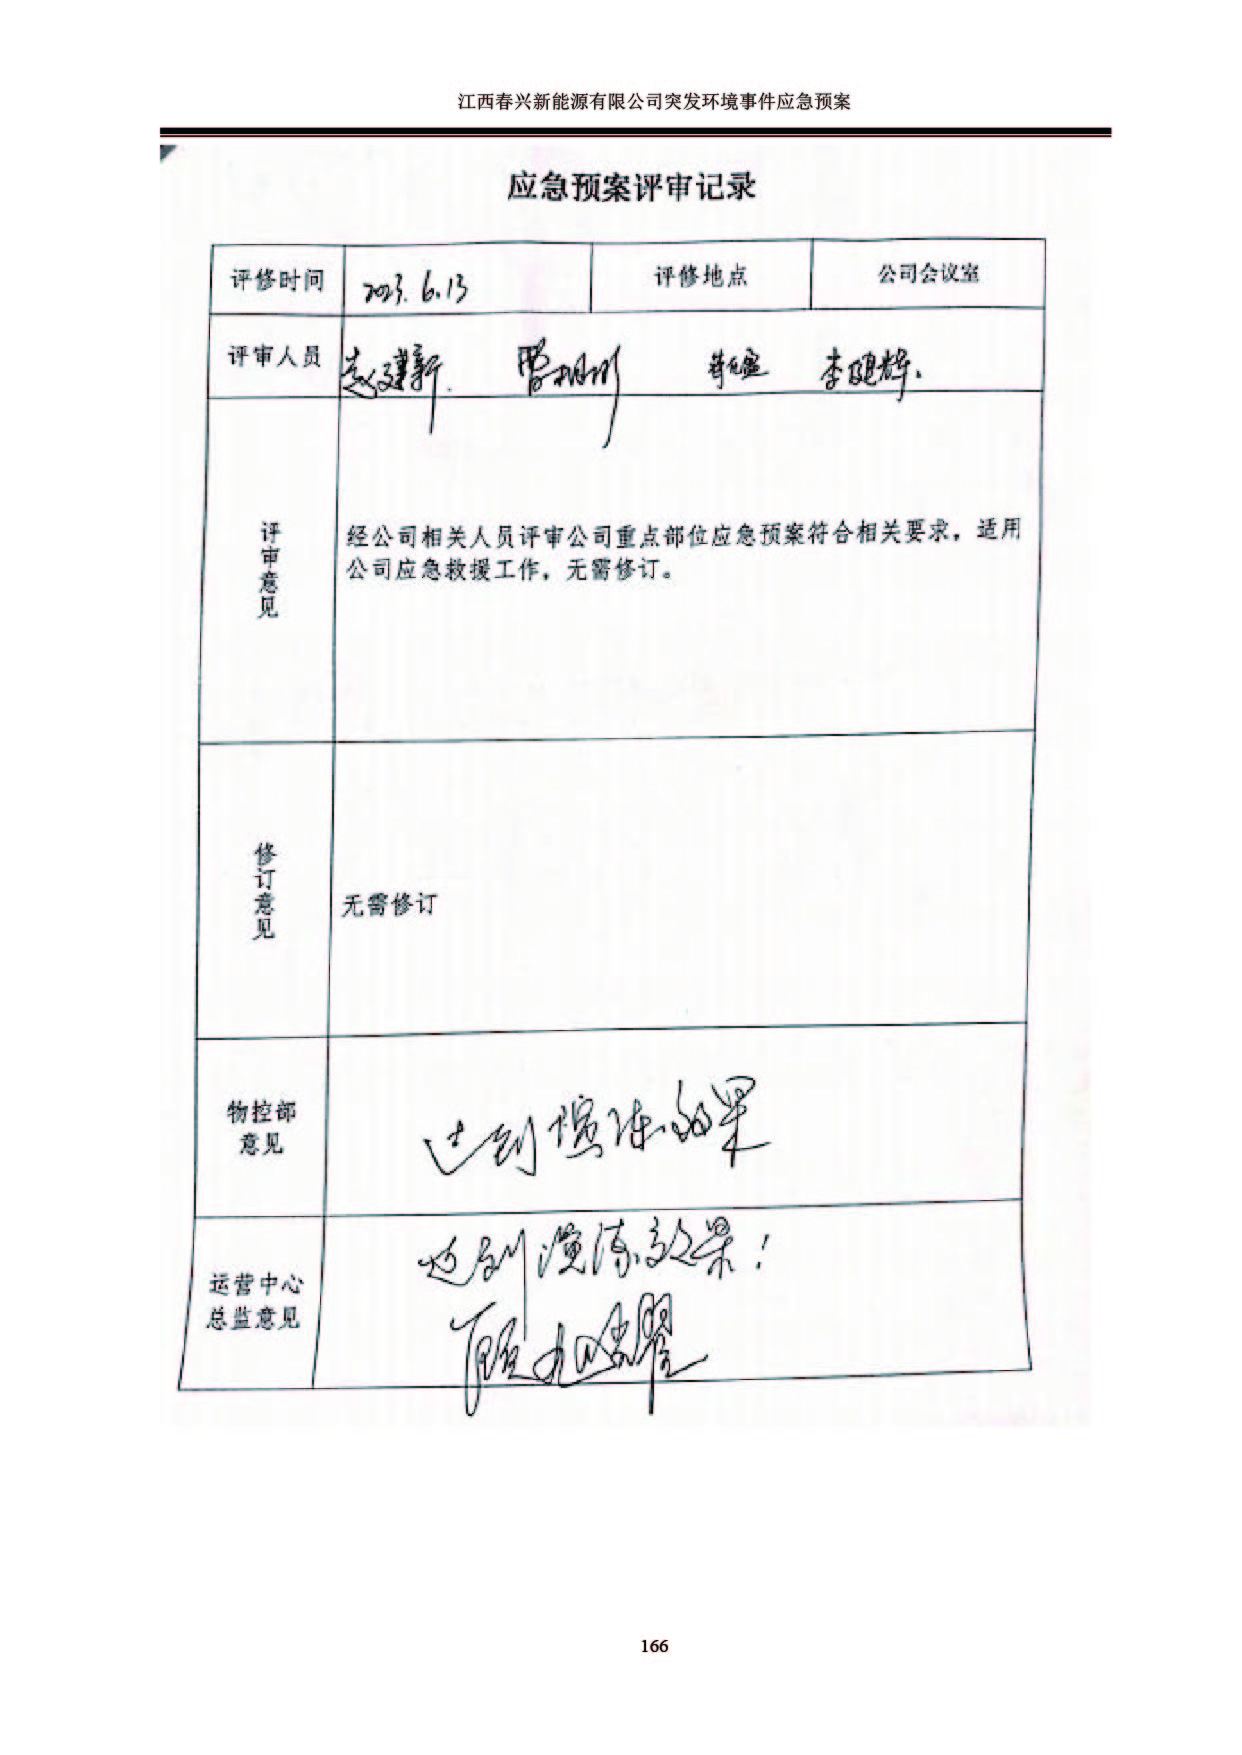 江西春兴新能源有限公司突发环境事件应急预案
应急预案评审记录
评修时间 2023.6.13 评修地点 公司会议室
评审人员 赵建新. 李建辉.
评审意见
经公司相关人员评审公司重点部位应急预案符合相关要求，适用
公司应急救援工作，无需修订。
修订意见
无需修订
物控部
意见
达到演练效果
运营中心
总监意见
达到演练效果！
166